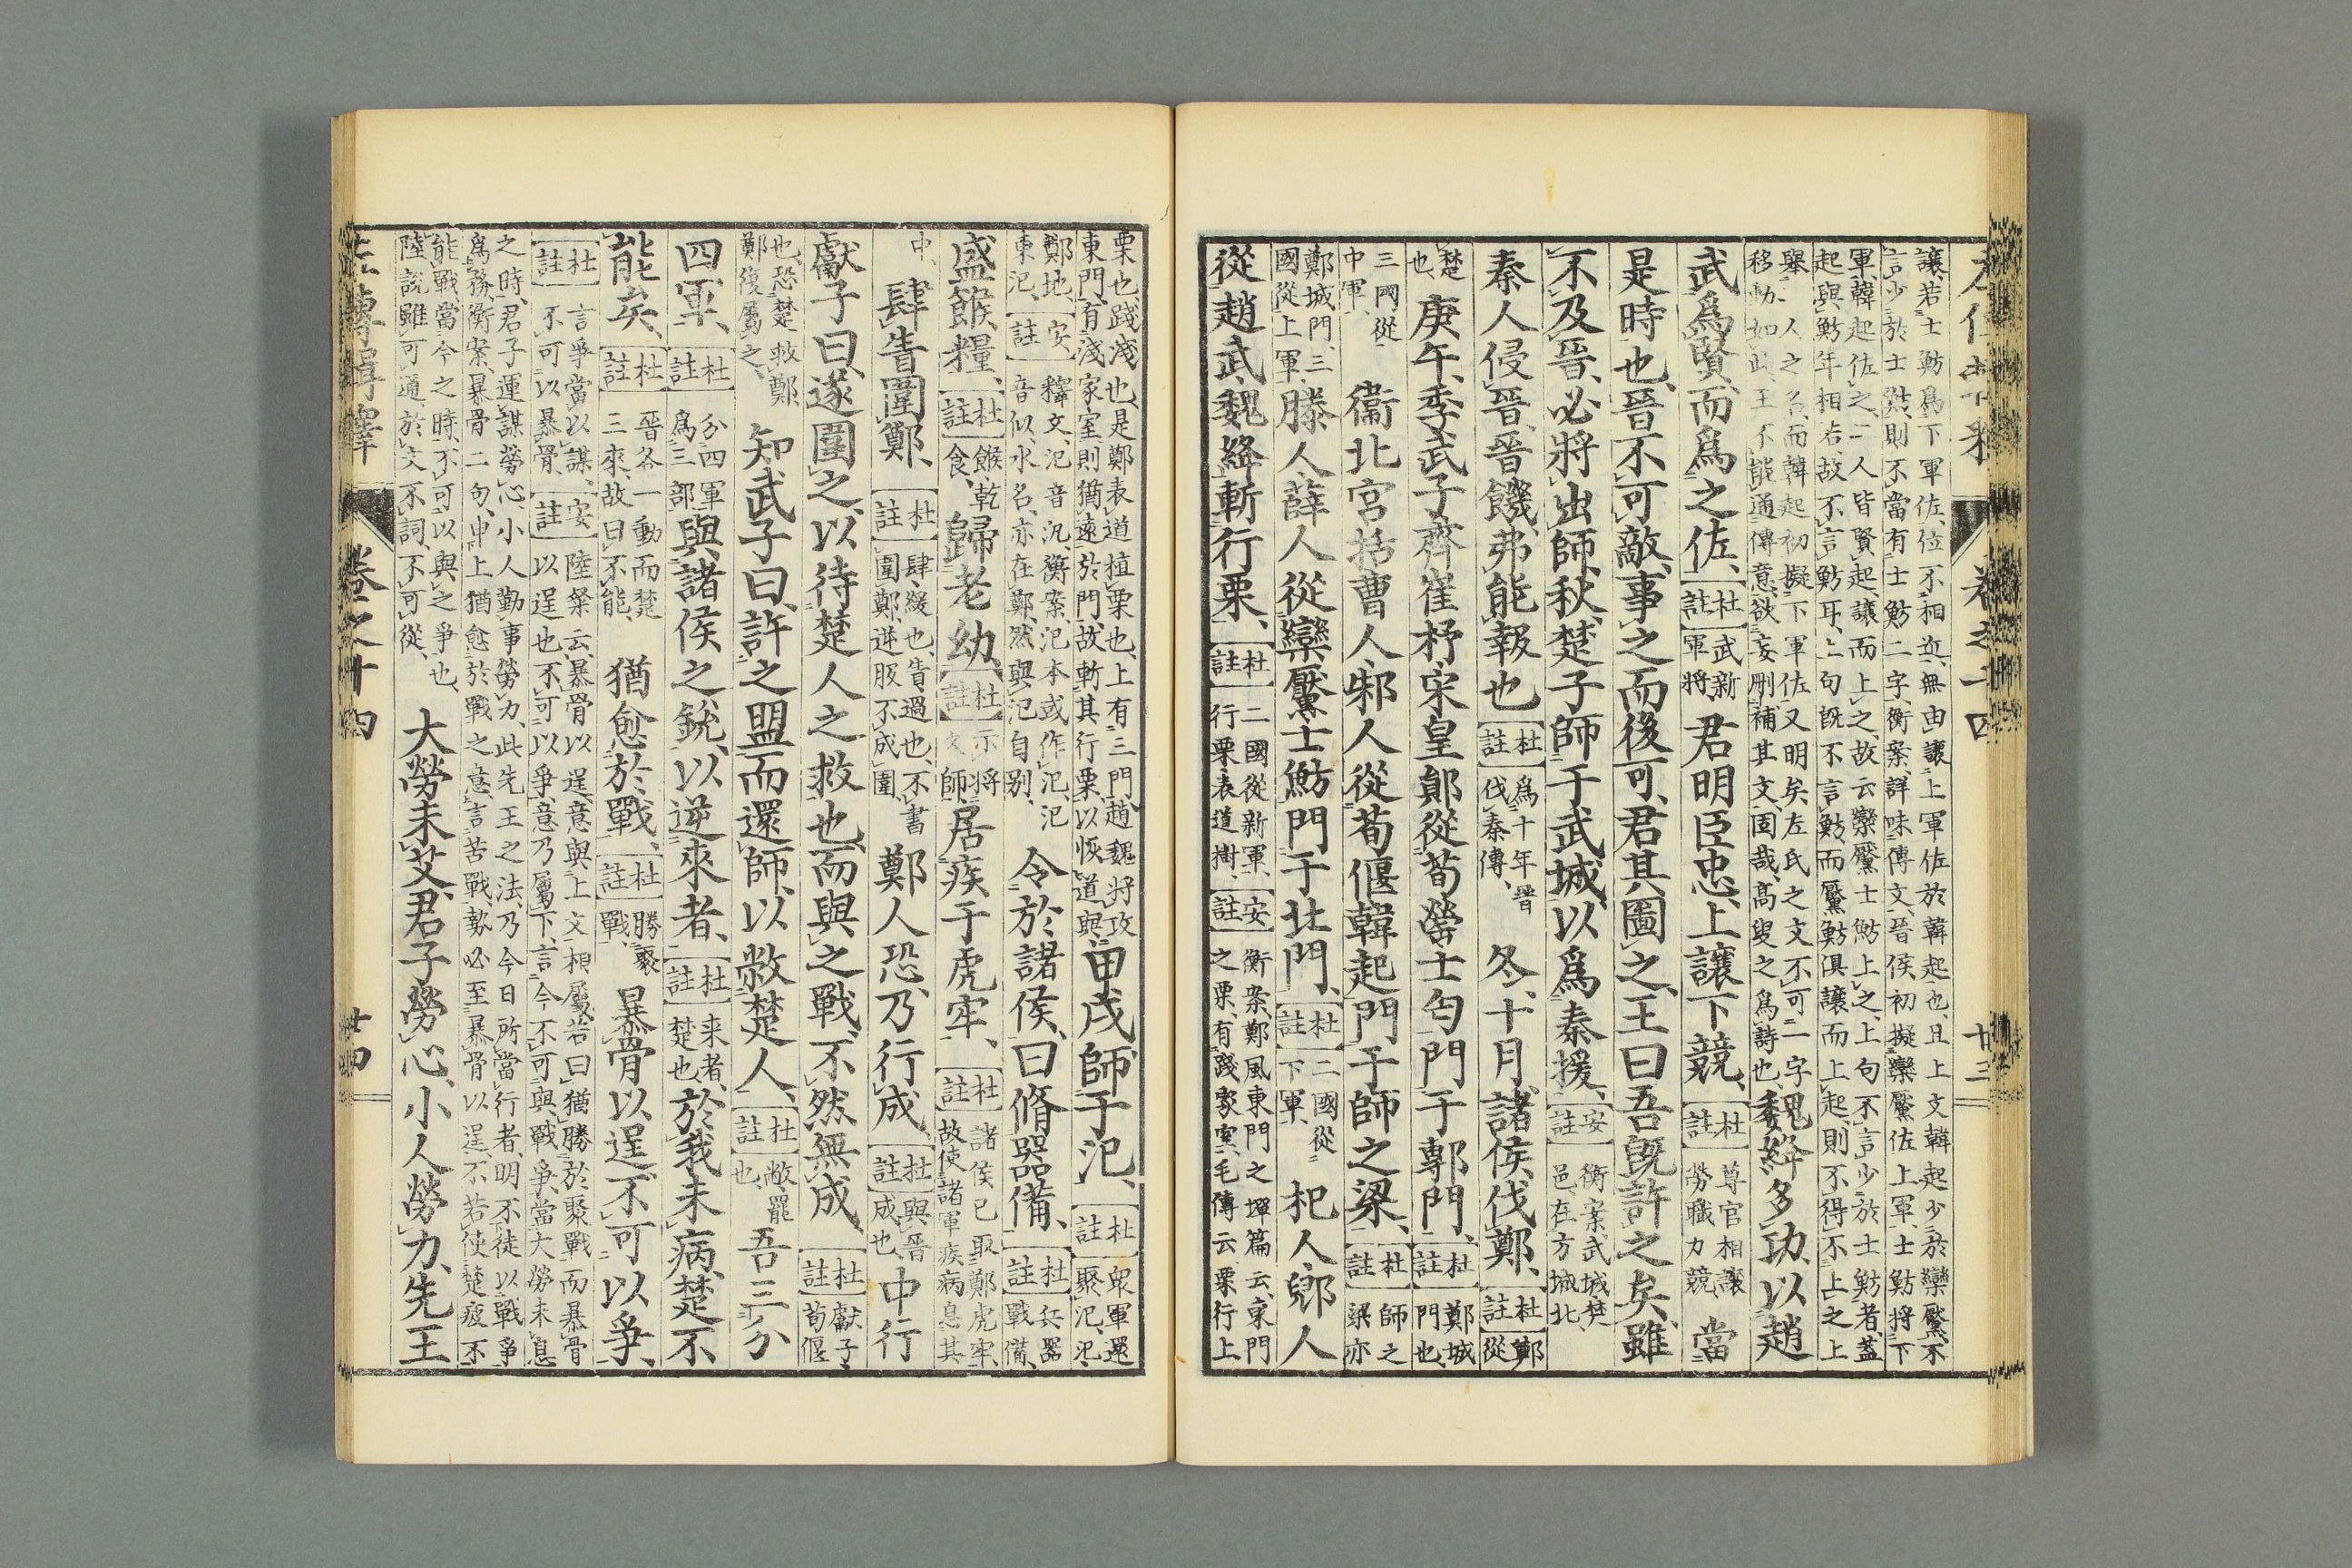 讓、若士魴爲下軍佐、位不相近、無由讓上軍佐於韓起也、且上文韓起少於欒黶、不
言少於士魴、則不當有士魴二字、衡案、詳味傳文、晉侯初擬欒黶佐上軍、士魴將下
軍、韓起佐之、二人皆賢起、讓而上之、故云欒黶士魴上之、上句不言少於士魴者、蓋
起與魴年相若、故不言魴耳、上句既不言魴、而黶魴俱讓而上起、則不得不占之上
舉二人之名、而韓起初擬下軍佐、又明矣、左氏之文、不可一字
移動如此、王不能通傳意、欲妄刪補其文、固哉、高叟之爲詩也、魏絳多功、以趙
武爲賢、而爲之佐、杜註武新軍將君明臣忠、上讓下競、杜註尊官相讓勞職力競、當
是時也、晉不可敵、事之而後可、君其圖之、王曰吾既許之矣、雖
不及晉、必將出師、秋、楚子師于武城、以爲秦援、安註衡案、武城、楚邑、在方城北、
秦人侵晉、晉饑、弗能報也杜註爲十年晉伐秦傳、冬、十月、諸侯伐鄭、杜註鄭從
楚也、庚午、季武子齊崔杼宋皇鄖從荀罃士匄門于鄟門、杜註鄭城門也、
三國從中軍、衞北宮括曹人邾人從荀偃韓起門于師之梁、杜註師之梁亦
鄭城門、三國從上軍、滕人薛人從欒黶士魴門于北門、杜註二國從下軍、杞人郳人
從趙武魏絳斬行栗、杜註二國從新軍、行栗表道樹、安註衡案、鄭風東門之墠篇云、東門之栗、有踐家室、毛傳云、栗行上
栗也、踐淺也、是鄭表道植栗也、上有三門、趙魏將攻
東門、有淺家室、則猶遠於門、故斬其行栗、以恢道與、甲戌師于氾、杜註衆軍還聚氾、氾
鄭地東氾、安註釋文、氾音汎、衡案、氾本或作汜、汜音似、水名、亦在鄭、然與氾自別、令於諸侯、曰脩器備、杜註兵器戰備、
盛餱糧、杜註餱、乾食、歸老幼、杜註示將久師、居疾于虎牢、杜註諸侯已取鄭虎牢、故使諸軍疾病息其
中、肆眚圍鄭、杜註肆、緩也、眚、過也、不書圍鄭、逆服不成圍、鄭人恐、乃行成、杜註與晉成也、中行
獻子曰、遂圍之、以待楚人之救也、而與之戰、不然無成、杜註獻子、荀偃
也、恐楚救鄭鄭復屬之、知武子曰、許之盟而還師、以敝楚人、杜註敝、罷也、吾三分
四軍、杜註分四軍爲三部與諸侯之銳、以逆來者、杜註來者、楚也、於我未病、楚不
能矣、杜註晉各一動而楚三來、故曰不能、猶愈於戰、杜註勝聚戰、暴骨以逞、不可以爭、
杜註言爭當以謀、不可以暴骨、安註陸粲云、暴骨以逞、意與上文相屬、若曰猶勝於聚戰而暴骨以逞也、不可以爭、意乃屬下、言今不可與戰爭、當大勞未息
之時、君子運謀勞心、小人勤事勞力、此先王之法、乃今日所當行者、明不徒以戰爭
爲務、衡案、暴骨二句、申上猶愈於戰之意、言苦戰、勢必至暴骨以逞、不若使楚疲不
能戰、當今之時、不可以與之爭也、陸說雖可通、於文不詞、不可從、大勞未艾、君子勞心、小人勞力、先王
卷之十四
廿四